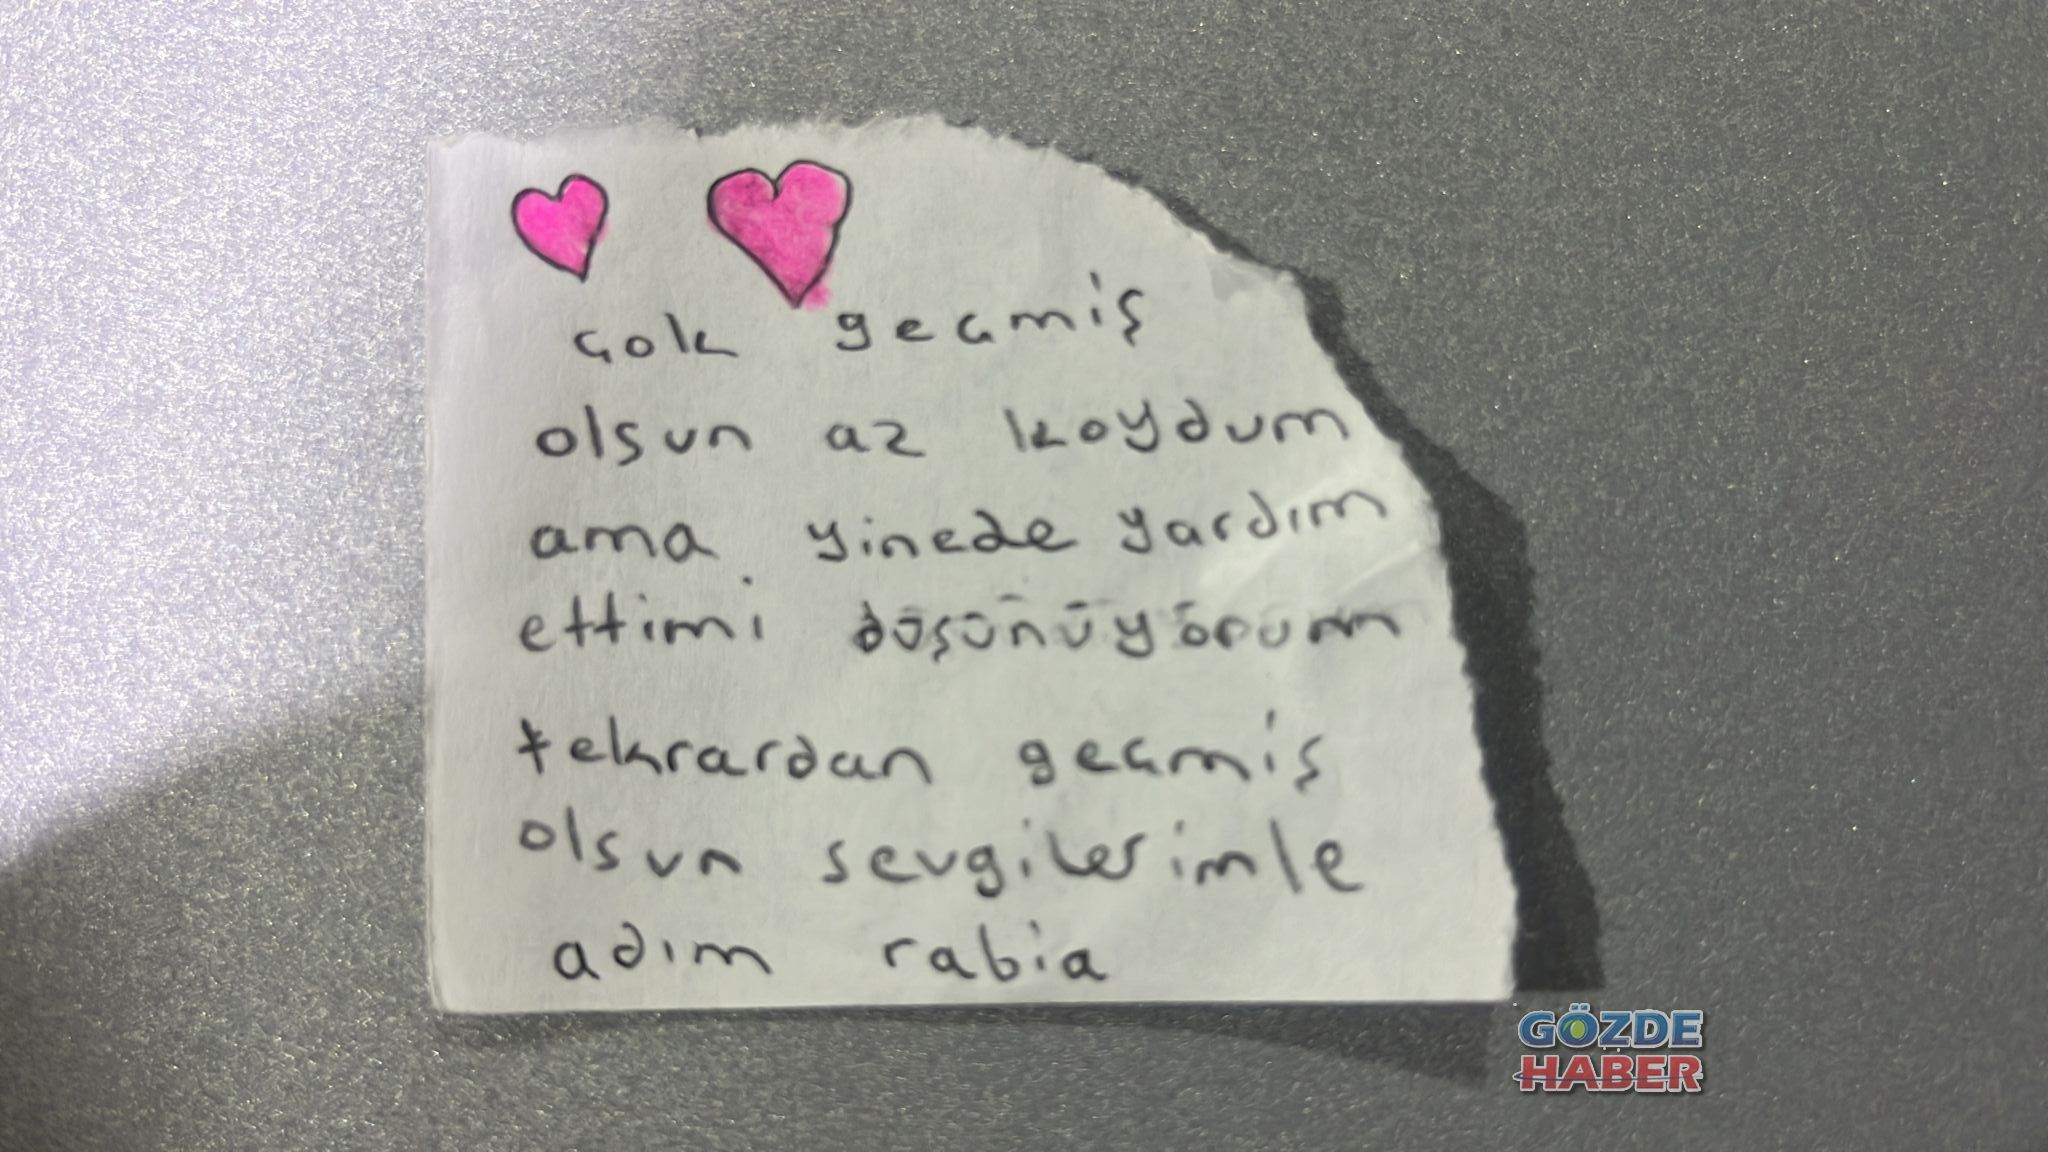 çok geçmiş
olsun az koydum
ama yinede yardım
ettimi düşünüyorum
tekrardan geçmiş
olsun sevgilerimle
adım rabia
GÖZDE
HABER